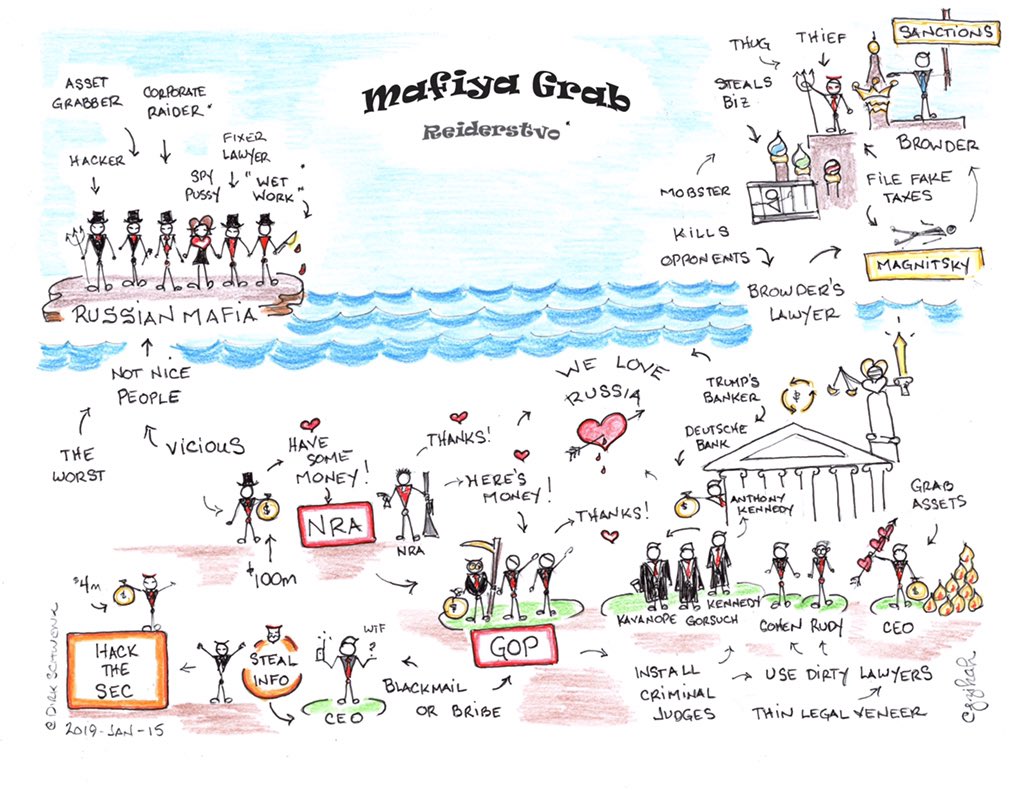 Mafiya Grab
Reiderstvo
ASSET
GRABBER
CORPORATE
RAIDER
HACKER
FIXER
LAWYER
SPY
PUSSY
"WET
WORK"
RUSSIAN MAFIA
NOT NICE
PEOPLE
THE
WORST
VICIOUS
THUG
THIEF
SANCTIONS
STEALS
BIZ
BROWDER
MOBSTER
FILE FAKE
TAXES
KILLS
OPPONENTS
MAGNITSKY
BROWDER'S
LAWYER
WE LOVE
RUSSIA
TRUMP'S
BANKER
$
DEUTSCHE
BANK
HAVE
SOME
MONEY!
THANKS!
HERE'S
MONEY!
$
NRA
NRA
$100M
THANKS!
$
ANTHONY
KENNEDY
GRAB
ASSETS
$4M
$
HACK
THE
SEC
STEAL
INFO
WTF
?
CEO
BLACKMAIL
OR BRIBE
$
GOP
KAVANOPE
GORSUCH
KENNEDY
COHEN
RUDY
$
CEO
INSTALL
CRIMINAL
JUDGES
USE DIRTY LAWYERS
THIN LEGAL VENEER
© DIRK SCHWENK
2019-JAN-15